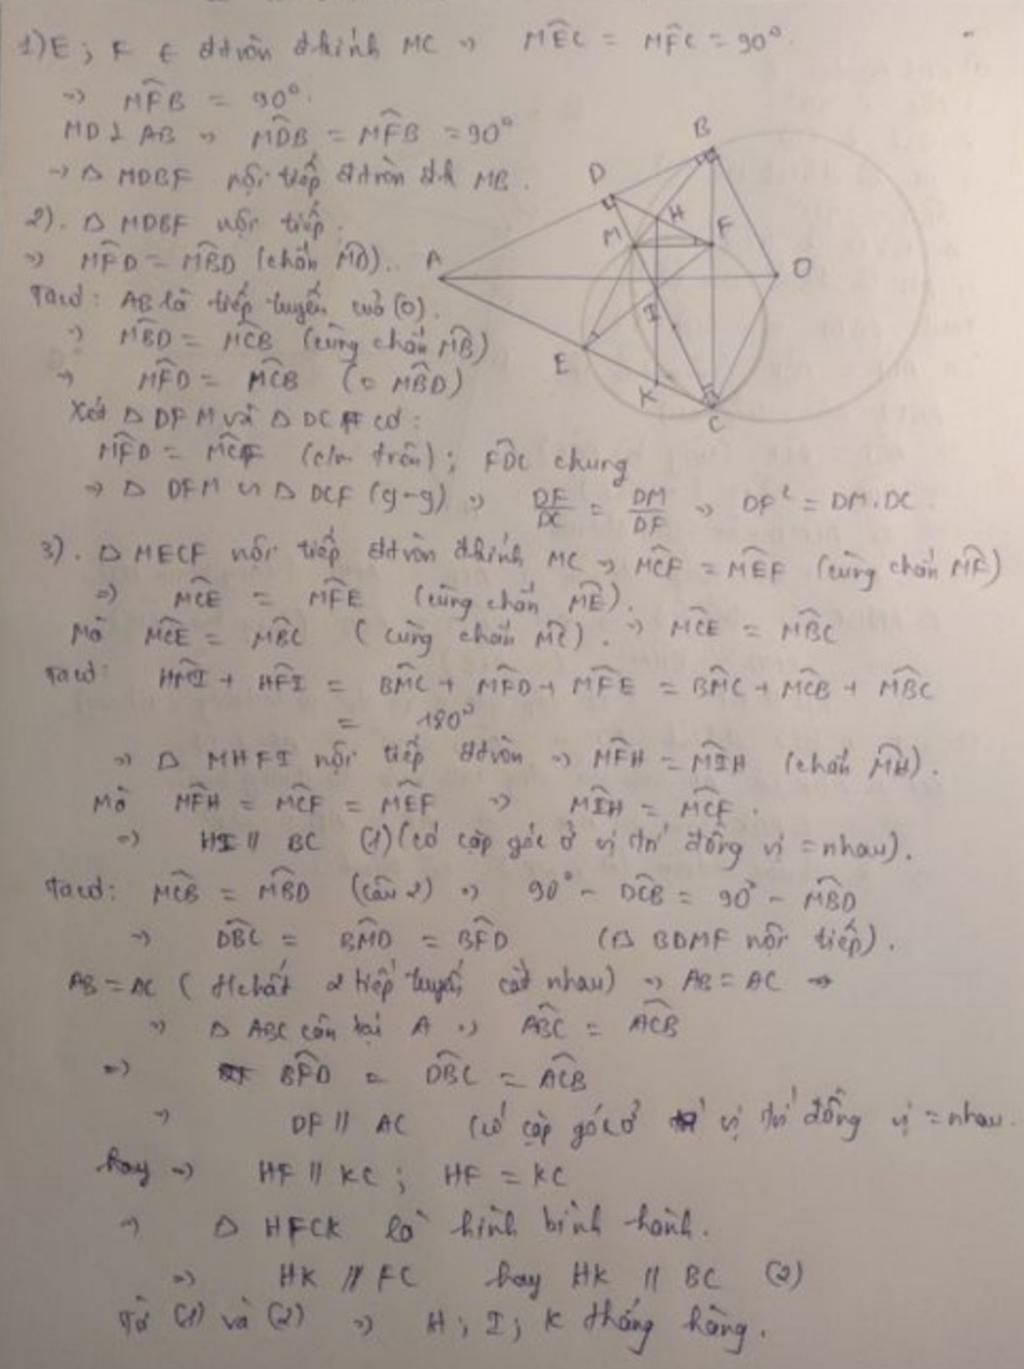 1) E ; F ∈ đtròn đkính MC => MÊC = MF̂C = 90°.
=> MF̂B = 90°.
MD ⊥ AB => MD̂B = MF̂B = 90°
-> ▱ MDBF nội tiếp đtròn đk MB.
2). ▱ MDBF nội tiếp.
=> MF̂D = MB̂D (chắn MD).
Tacó: AB là tiếp tuyến của (O).
=> MB̂D = MĈB (cùng chắn MB)
=> MF̂D = MĈB (= MB̂D)
Xét Δ DFM và Δ DCF có:
MF̂D = MĈF (clm trên) ; FD̂C chung
=> Δ DFM ∽ Δ DCF (g-g) => DF/DC = DM/DF => DF² = DM.DC.
3). ▱ MECF nội tiếp đtròn đkính MC => MĈF = MÊF (cùng chắn MF)
=> MĈE = MF̂E (cùng chắn ME).
Mà MĈE = MB̂C (cùng chắn MC). => MĈE = MB̂C
Tacó: HM̂I + HF̂I = BM̂C + MF̂D + MF̂E = BM̂C + MĈB + MB̂C
= 180°
=> ▱ MHFI nội tiếp đtròn => MF̂H = MÎH (chắn MH).
Mà MF̂H = MĈF = MÊF => MÎH = MĈF.
=> HI // BC (1) (có cặp góc ở vị trí đồng vị = nhau).
Tacó: MĈB = MB̂D (câu 2) => 90° - DĈB = 90° - MB̂D
=> DB̂C = BM̂D = BF̂D (▱ BDMF nội tiếp).
AB = AC (t/chất 2 tiếp tuyến cắt nhau) => AB = AC =>
=> Δ ABC cân tại A => AB̂C = AĈB
=> BF̂D = DB̂C = AĈB
=> DF // AC (có cặp góc ở vị trí đồng vị = nhau.
hay => HF // KC ; HF = KC
=> ▱ HFCK là hình bình hành.
=> HK // FC hay HK // BC (2)
Từ (1) và (2) => H ; I ; K thẳng hàng.
B
D
H
M
F
A
O
I
E
K
C